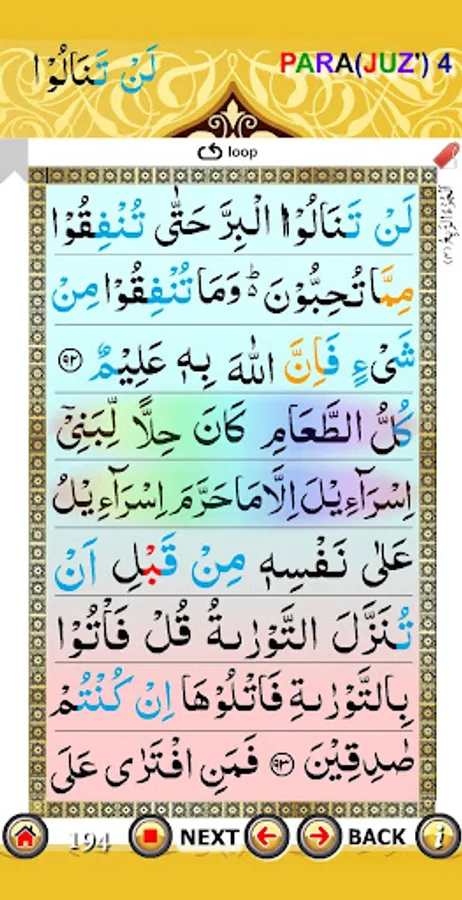 لَنْ تَنَالُوْا PARA(JUZ') 4
loop
لَنْ تَنَالُوْا الْبِرَّ حَتّٰى تُنْفِقُوْا
مِمَّا تُحِبُّوْنَ ؕ وَمَا تُنْفِقُوْا مِنْ
شَیْءٍ فَاِنَّ اللّٰهَ بِهٖ عَلِیْمٌ ﴿۹۲﴾
كُلُّ الطَّعَامِ كَانَ حِلًّا لِّبَنِیْۤ
اِسْرَآءِیْلَ اِلَّا مَا حَرَّمَ اِسْرَآءِیْلُ
عَلٰى نَفْسِهٖ مِنْ قَبْلِ اَنْ
تُنَزَّلَ التَّوْرٰىةُ قُلْ فَاْتُوْا
بِالتَّوْرٰىةِ فَاتْلُوْهَا اِنْ كُنْتُمْ
صٰدِقِیْنَ ﴿۹۳﴾ فَمَنِ افْتَرٰى عَلَى
194 NEXT BACK i